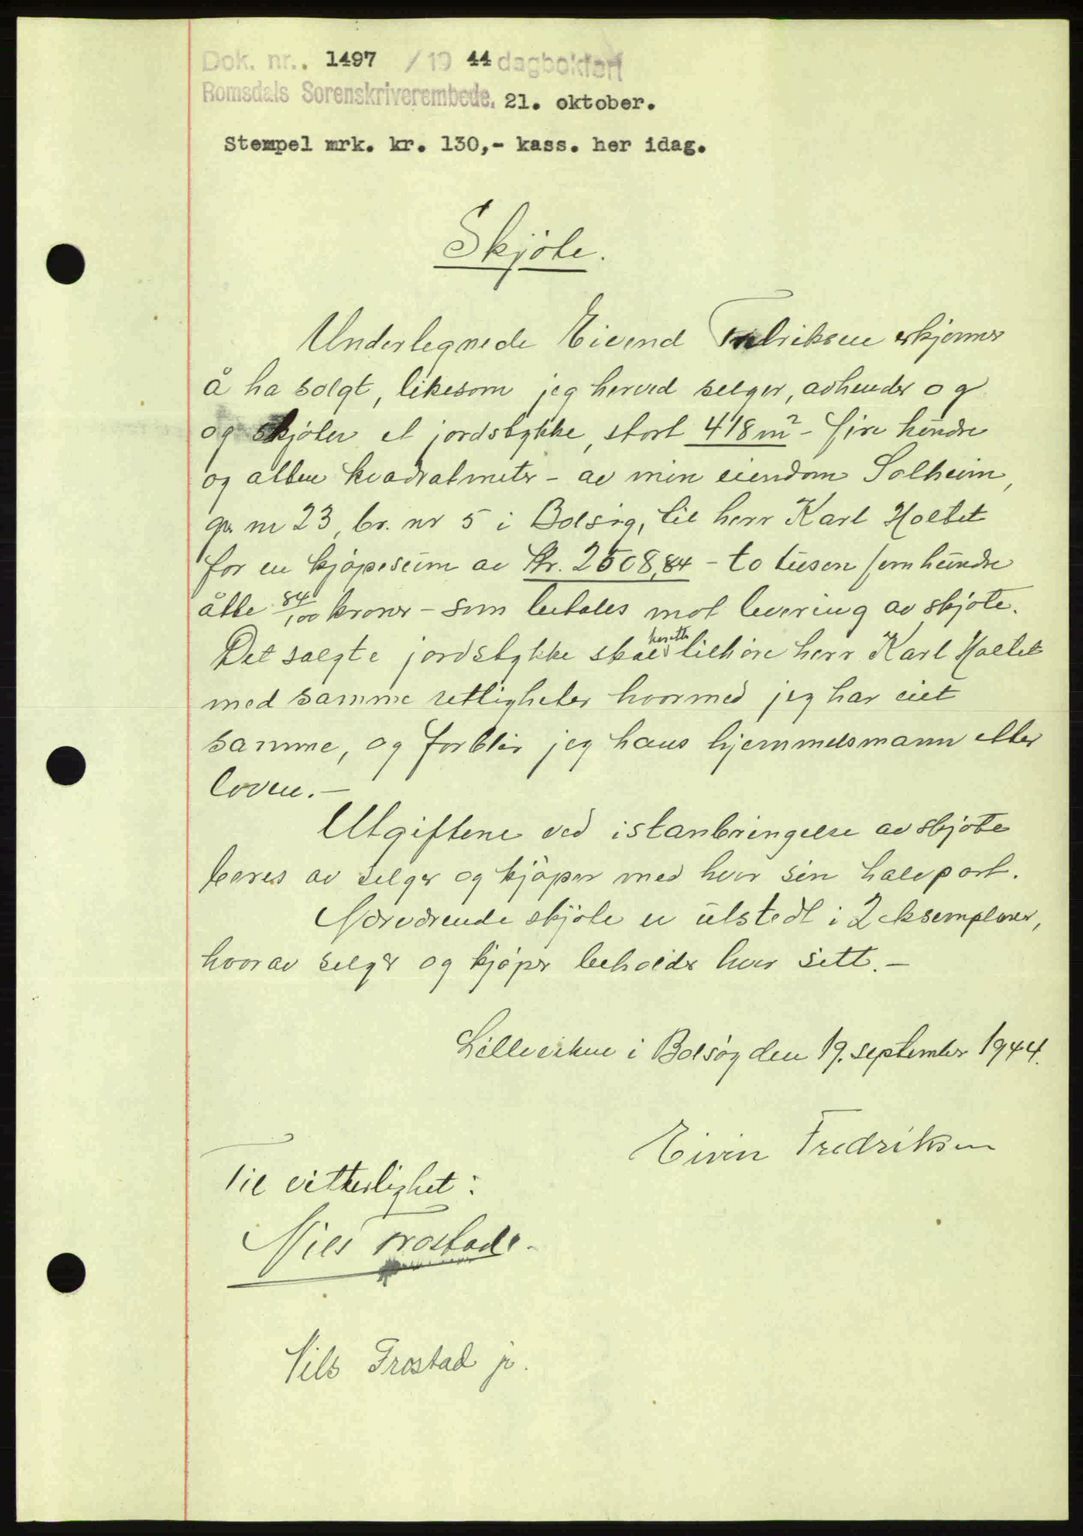 Dok. nr. 1497 / 19 44 dagbokført
Romsdals Sorenskriverembede. 21. oktober.
Stempel mrk. kr. 130,- kass. her idag.
Skjöte.
Underlegnede Eivend Fredriksen erkjenner
å ha solgt, likesom jeg herved selger, avhender og
og skjöter et jordstykke, stort 418 m² - fire hundre
og atten kvadratmeter - av min eiendom Solheim,
gr. nr 23, br. nr 5 i Bolsøy, til herr Karl Holtet
for en kjøpesum av Kr. 2508,84 - to tusen fem hundre
åtte 84/100 kroner - som betales mot levering av skjöte.
Det solgte jordstykke skal heretter tilhøre herr Karl Holtet
med samme rettigheter hvormed jeg har eiet
samme, og forblir jeg hans hjemmelsmann etter
loven. -
Utgiftene ved istanbringelse av skjöte
beres av selger og kjöper med hver sin halvpart.
Nærværende skjöte er utstedt i 2 eksemplarer,
hvorav selger og kjöper beholder hver sitt. -
i Bolsøy den 19. september 1944.
Eivin Fredriksen
Til vitterlighet:
Nils Frostad
Nils Frostad jr.